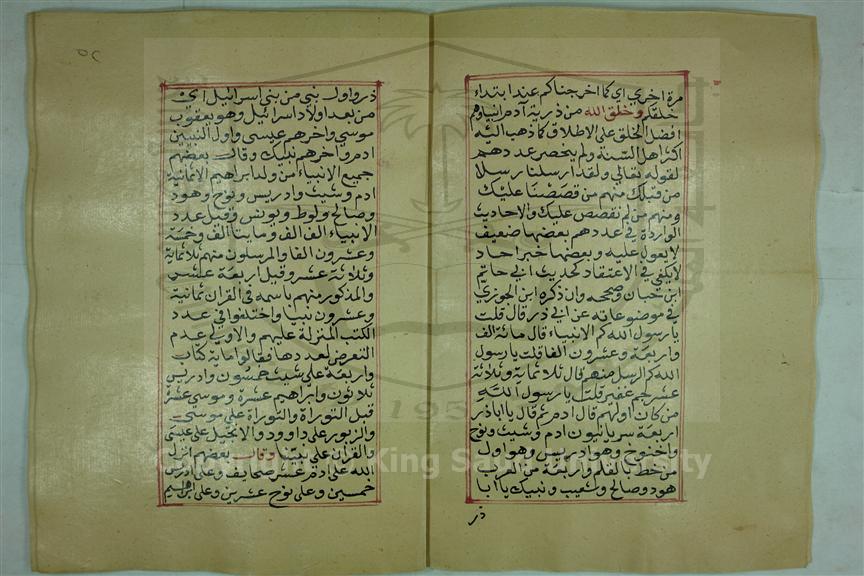 مرة اخري اي كما اخرجناكم عند ابتداء
خلقكم وخلق الله من ذرية آدم انبياء وهم
افضل الخلق علي الاطلاق كما ذهب اليه
اكثر اهل السنة ولم ينحصر عددهم
لقوله تعالي ولقد ارسلنا رسلا
من قبلك منهم من قصصنا عليك
ومنهم من لم نقصص عليك والاحاديث
الواردة في عددهم بعضها ضعيف
لا يعول عليه وبعضها خبر احاد
لا يكفي في الاعتقاد كحديث ابي حاتم
ابن حبان وصححه وان ذكره ابن الجوزي
في موضوعاته عن ابي ذر قال قلت
يا رسول الله كم الانبياء قال مائة الف
واربعة وعشرون الفا قلت يا رسول
الله كم الرسل منهم قال ثلاثماية وثلاثة
عشر جم غفير قلت يا رسول الله
من كان اولهم قال ادم ثم قال يا اباذر
اربعة سريانيون ادم وشيث ونوح
واخنوخ وهو ادريس وهو اول
من خط بالقلم واربعة من العرب
هود وصالح وشعيب ونبيك يا ابا
ذر
ذر واول نبي من بني اسرائيل اي
من بعد اولاد اسرائيل وهو يعقوب
موسي واخرهم عيسي واول النبيين
ادم واخرهم نبيك وقال بعضهم
جميع الانبياء من ولد ابراهيم الا ثمانية
ادم وشيث وادريس ونوح وهود
وصالح ولوط ويونس وقيل عدد
الانبياء الف الف ومايتا الف وخمسة
وعشرون الفا والمرسلون منهم ثلاثماية
وثلاثة عشر وقيل اربعة عشر
والمذكور منهم باسمه في القران ثمانية
وعشرون نبيا واختلفوا في عدد
الكتب المنزلة عليهم والاولي عدم
التعرض لعددها فقالوا ماية كتاب
واربعة علي شيث خمسون وادريس
ثلاثون وابراهيم عشرة وموسي عشرة
قبل التوراة والتوراة علي موسي
والزبور علي داوود والانجيل علي عيسي
والقران علي نبينا وقال بعضهم انزل
الله علي ادم عشر صحايف وعلي ادريس
خمسين وعلي نوح عشرين وعلي ابراهيم